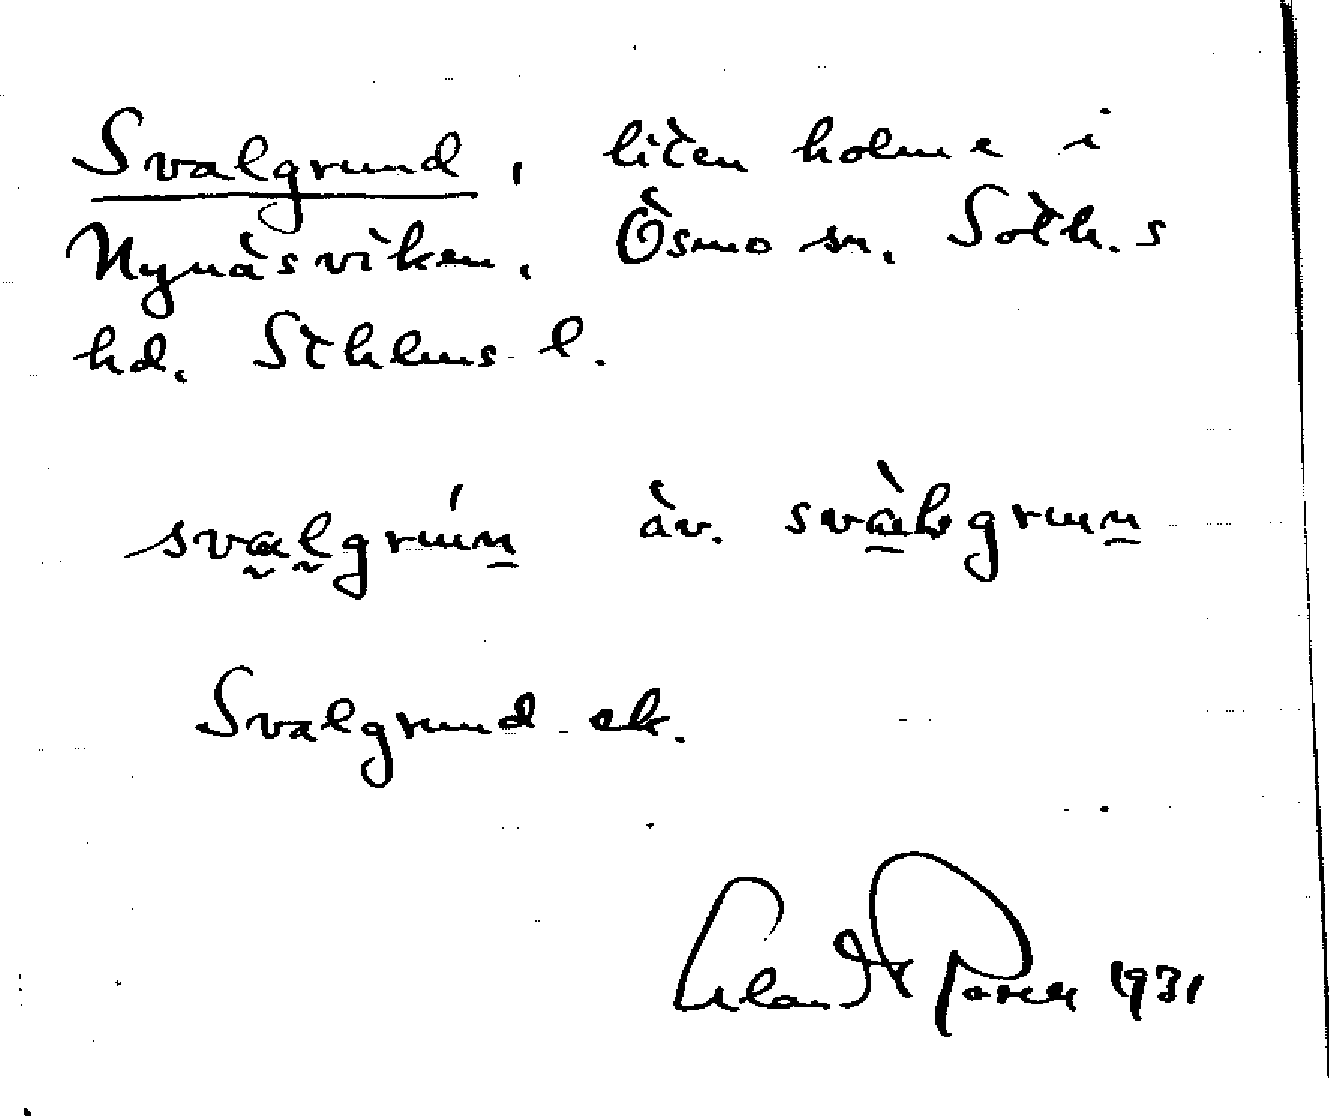 Svalgrund, liten holme i
Nynäsviken, Ösmo sn, Soth.s
hd. Sthlms l.
svalgrún äv. svàlsgrun
Svalgrund ek.
1931